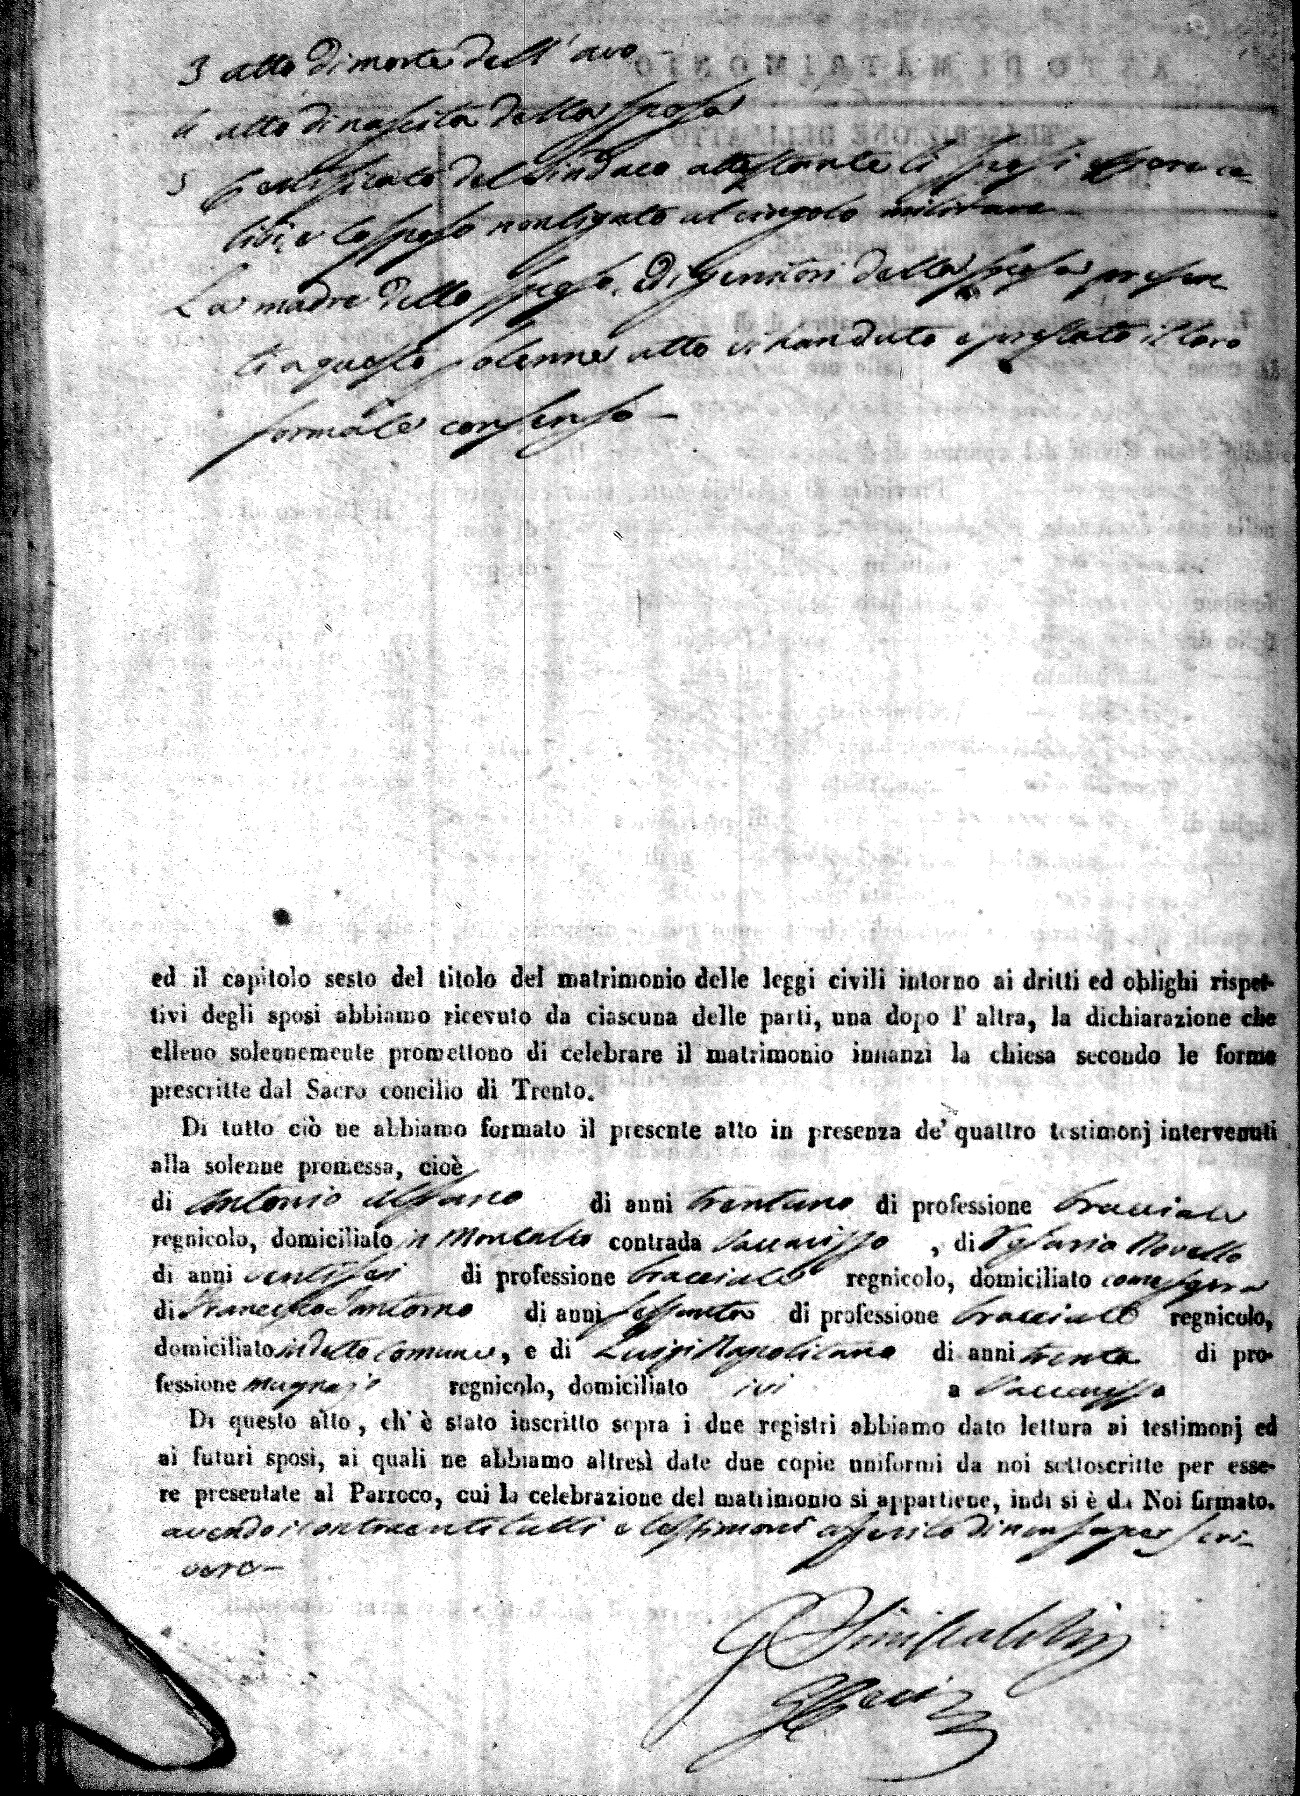 3 atto di morte dell'avo
4 atto di nascita della sposa
5 Certificato del Sindaco attestante li sposi essere ce-
libi, e lo sposo non ligato al cingolo militare
La madre dello sposo, Di Genitori della sposa presen-
ti a questo solenne atto vi han dato e prestato il loro
formale consenso —
ed il capitolo sesto del titolo del matrimonio delle leggi civili intorno ai dritti ed oblighi rispet-
tivi degli sposi abbiamo ricevuto da ciascuna delle parti, una dopo l' altra, la dichiarazione che
elleno solennemente promettono di celebrare il matrimonio innanzi la chiesa secondo le forme
prescritte dal Sacro concilio di Trento.
Di tutto ciò ne abbiamo formato il presente atto in presenza de' quattro testimonj intervenuti
alla solenne promessa, cioè
di Antonio Alfano di anni trentuno di professione bracciale
regnicolo, domiciliato in Montalto contrada Vaccarizzo , di Novello
di anni ventisei di professione bracciale regnicolo, domiciliato come sopra
di Francesco Santorno di anni sessanta di professione bracciale regnicolo,
domiciliato in detto Comune, e di Luigi Napolitano di anni trenta di pro-
fessione mugnajo regnicolo, domiciliato ivi a Vaccarizzo
Di questo atto, ch' è stato inscritto sopra i due registri abbiamo dato lettura ai testimonj ed
ai futuri sposi, ai quali ne abbiamo altresì date due copie uniformi da noi sottoscritte per esse-
re presentate al Parroco, cui la celebrazione del matrimonio si appartiene, indi si è da Noi firmato.
avendo i contraenti tutti e testimoni asserito di non saper scri-
vere —